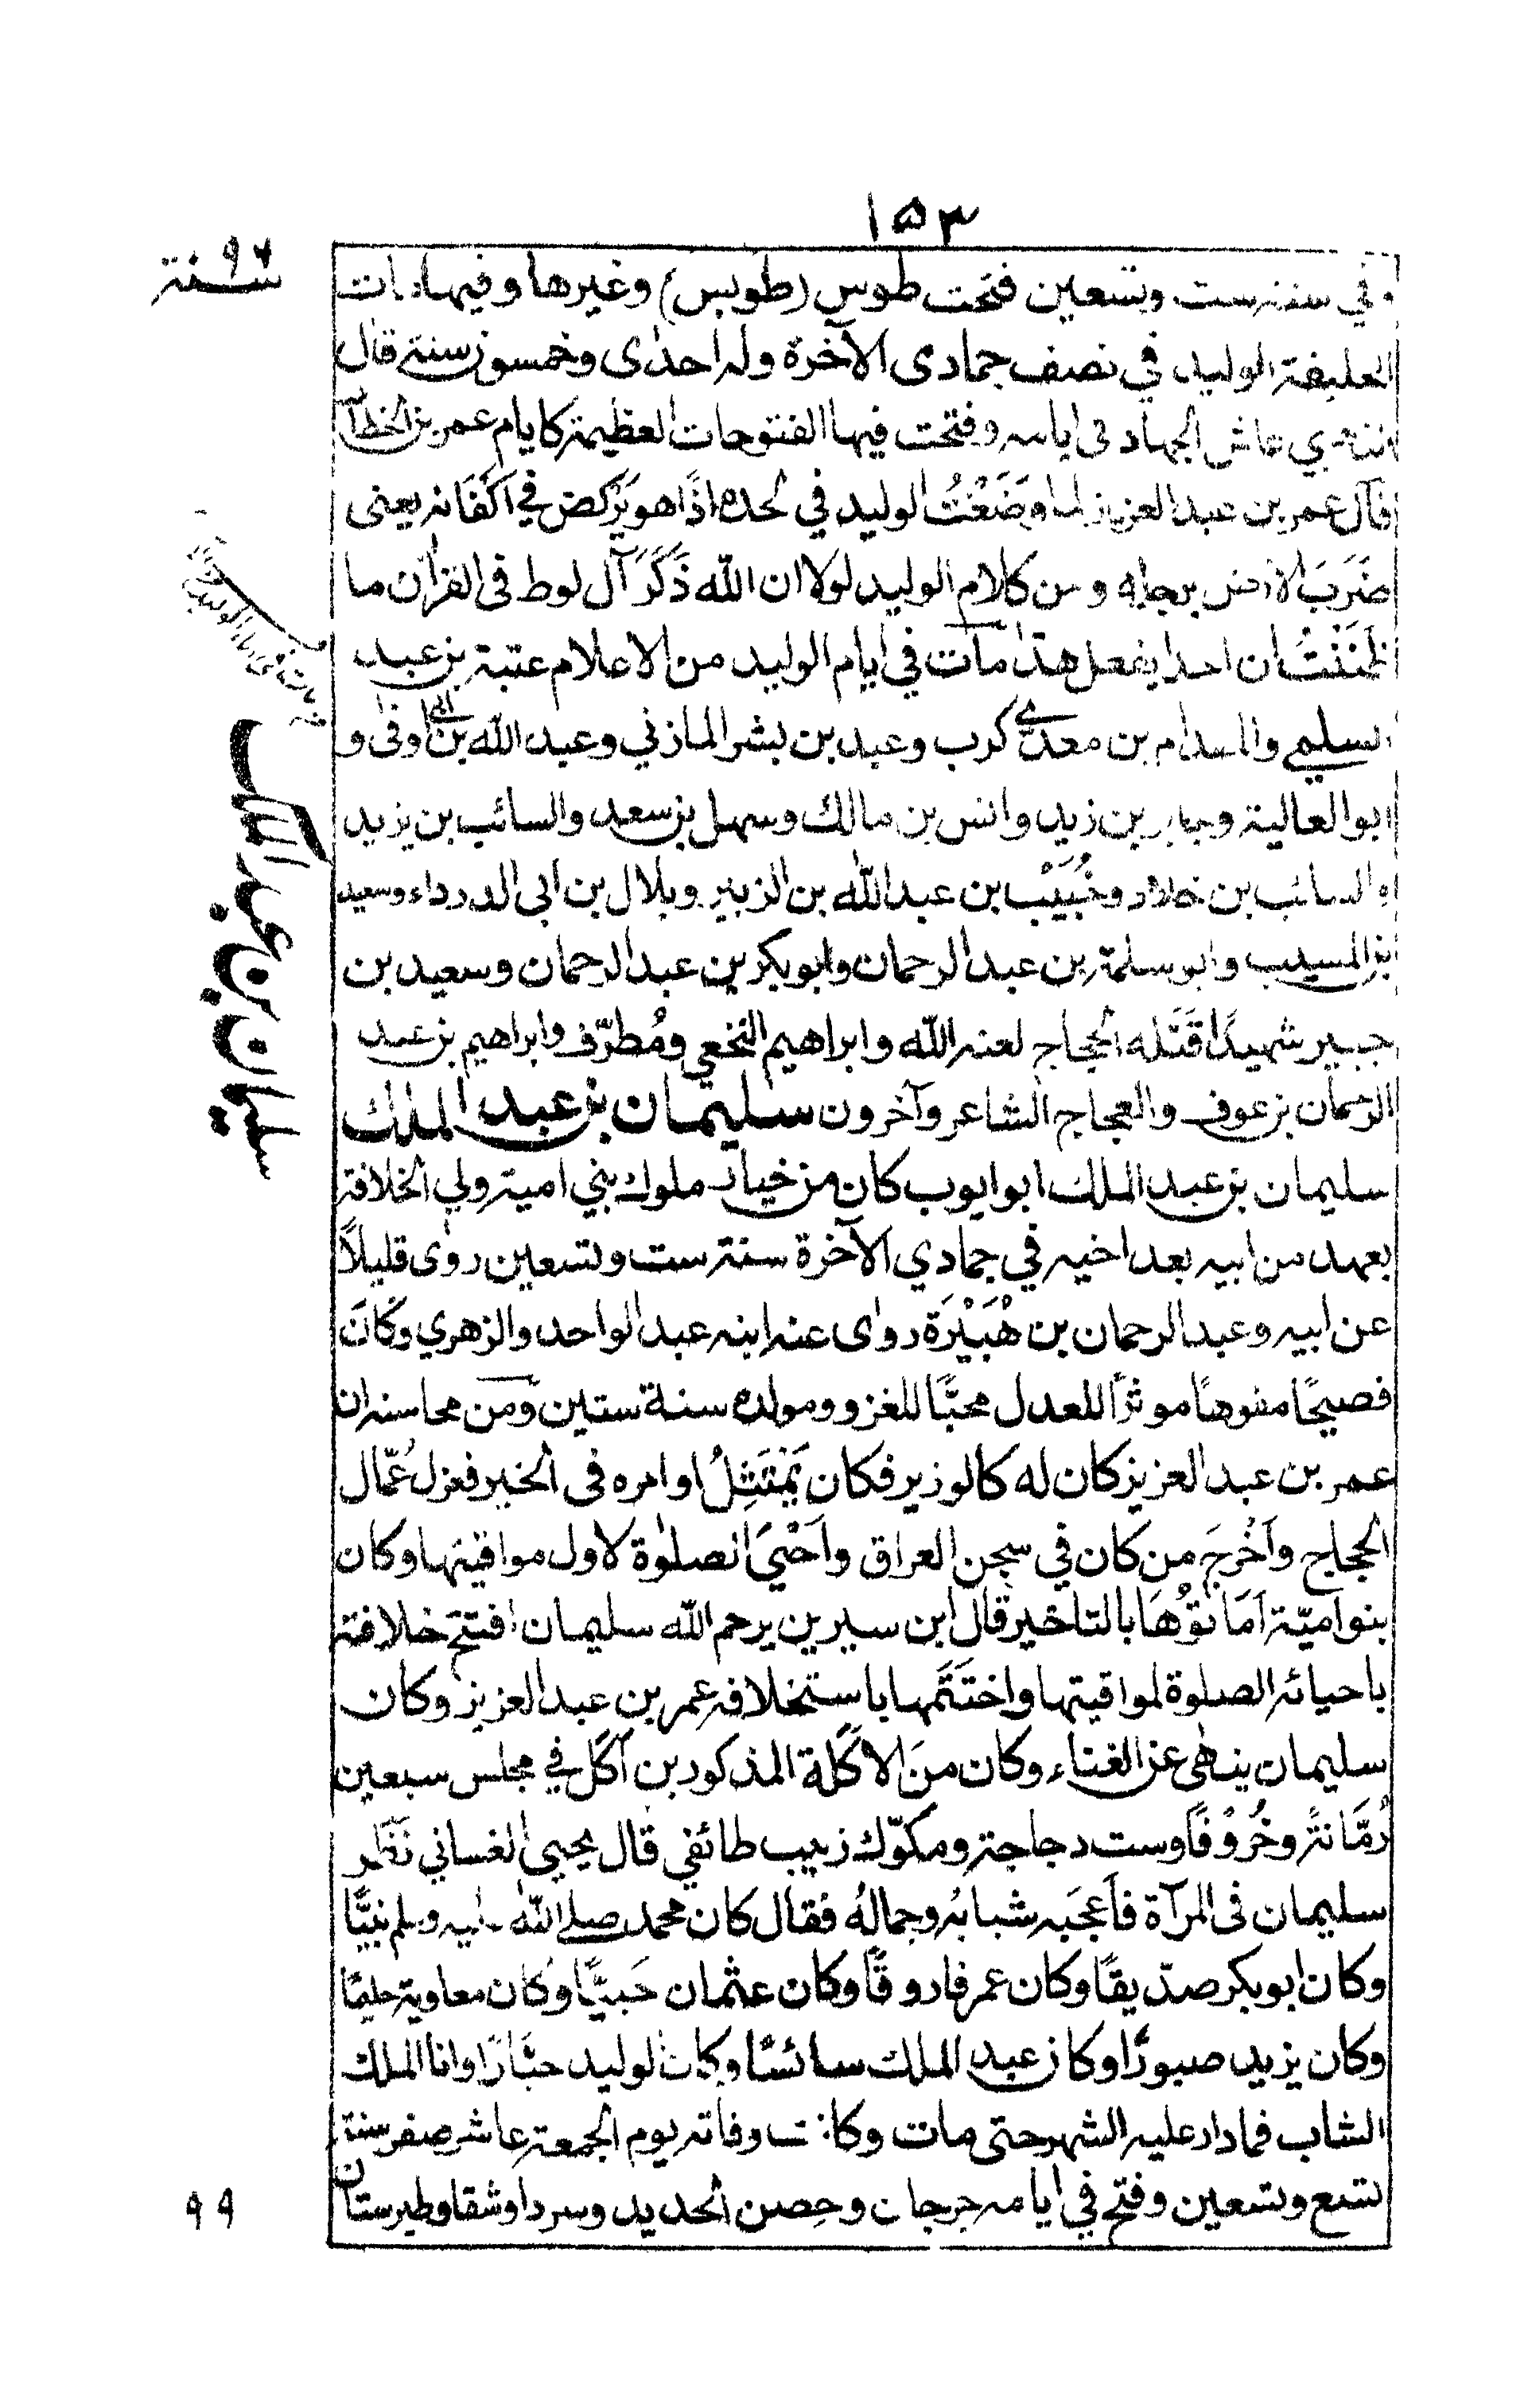 ۱۵۳
سنة ۹۶
وفي سنة ست وتسعين فتحت طوس (طوبس) وغيرها وفيها مات
الخليفة الوليد في نصف جمادى الآخرة وله احدى وخمسون سنة قال
الذهبي عاش الجهاد فى ايامه وفتحت فيها الفتوحات العظيمة كايام عمر بن الخطاب
قال عمر بن عبد العزيز لما وَضَعْتُ الوليد في لحده اذًا هو يَرْكض في اَكْفَانه يعنى
ضَرَبَ الارض برجله ومن كلام الوليد لولا ان الله ذَكَرَ آل لوط فى القرآن ما
ظَنَنْتُ ان احدا يفعل هذا مات في ايام الوليد من الاعلام عتبة بن عبد
السلمي والمقدام بن معدي كرب وعبد بن بشر المازني وعبد الله بن ابى اوفى و
ابو العالية وجابر بن زيد وانس بن مالك وسهل بن سعد والسائب بن يزيد
والسائب بن خلاد وخُبَيْب بن عبد الله بن الزبير وبلال بن ابى الدرداء وسعيد
بن المسيب وابو سلمة بن عبد الرحمان وابو بكر بن عبد الرحمان وسعيد بن
جبير شهيدًا قَتَله الحجاج لعنه الله وابراهيم النخعي ومُطرّف وابراهيم بن عبد
الرحمان بن عوف والعجاج الشاعر وآخرون سليمان بن عبد الملك
سليمان بن عبد الملك ابو ايوب كان من خيار ملوك بني امية ولي الخلافة
بعهد من ابيه بعد اخيه في جمادي الآخرة سنة ست وتسعين روى قليلاً
عن ابيه وعبد الرحمان بن هُبَيْرَة رواى عنه ابنه عبد الواحد والزهري وكَانَ
فصيحًا مفوهًا موثرًا للعدل محبًّا للغزو ومولده سنة ستين ومن محاسنه ان
عمر بن عبد العزيز كان له كالوزير فكان يَمْتَثِلُ اوامره فى الخير فعزل عُمّال
الحجاج واَخْرجَ من كان في سجن العراق واَحْيَىٰ الصلوٰة لاول مواقيتها وكان
بنو اميّة اَمَاتُوْهَا بالتاخير قال ابن سيرين يرحم الله سليمان افتتح خلافته
باحيائه الصلوة لمواقيتها واختَتَمها باستخلافه عمر بن عبد العزيز وكان
سليمان ينهٰى عن الغناء وكان منَ الاَكَلة المذكورين اَكَلَ في مجلس سبعين
رُمّانةً وخُرُوْفًا وست دجاجة ومكوّك زبيب طائفي قال يحيى الغساني نَظَر
سليمان فى المرآة فاَعجَبه شبابُه وجمالُهُ فقال كان محمد صلى الله عليه وسلم نبيًّا
وكان ابو بكر صدّيقًا وكان عمر فاروقًا وكان عثمان حَبييًّا وكان معاوية حليمًا
وكان يزيد صبورًا وكان عبد الملك سائسًا وكان الوليد جبَّارًا وانا الملك
الشاب فما دار عليه الشهر حتى مات وكانت وفاته يوم الجمعة عاشر صفر سنة
تسع وتسعين وفتح في ايامه جرجان وحِصن الحديد وسردا وشقا وطبرستان
سليمان بن عبد الملك
۹۹